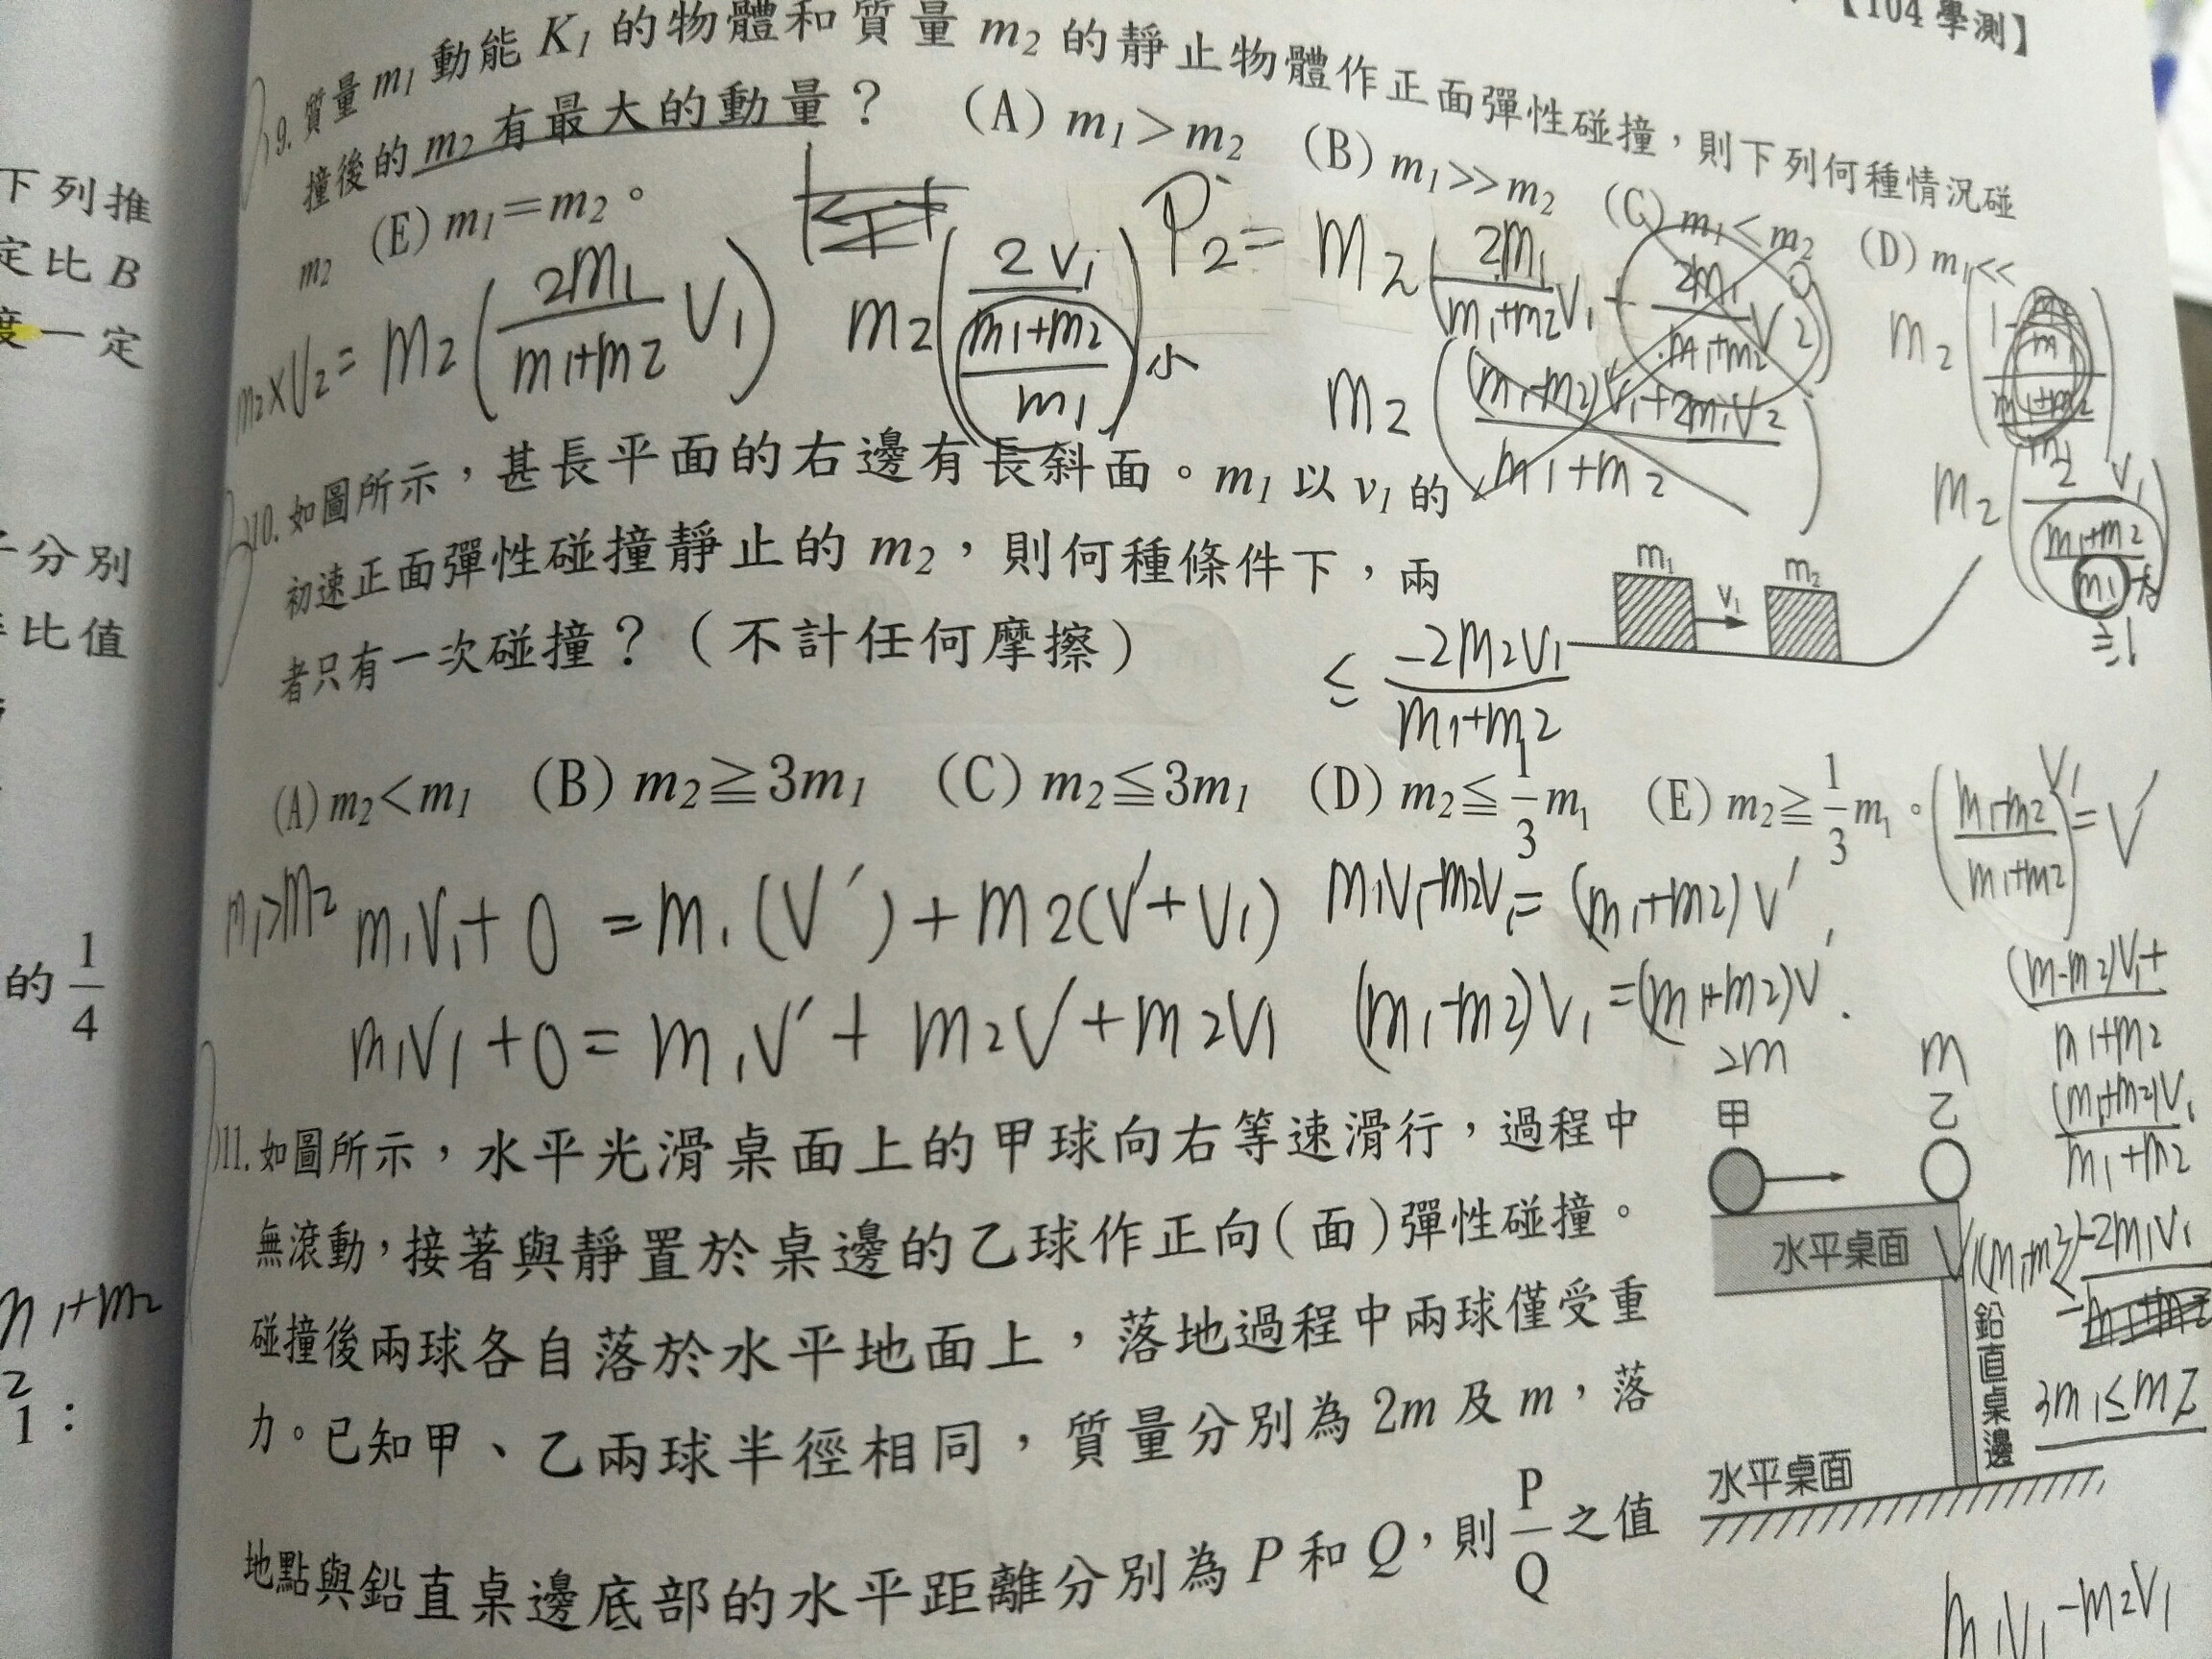 【104 學測】
9. 質量 m1 動能 K1 的物體和質量 m2 的靜止物體作正面彈性碰撞，則下列何種情況碰
撞後的 m2 有最大的動量？ (A) m1＞m2 (B) m1>>m2 (C) m1＜m2 (D) m1<<
m2 (E) m1＝m2。
m2×V2 = m2 ( 2m1/(m1+m2) V1 )
m2 ( 2V1 / ((m1+m2)/m1) ) 小
P2 = m2 ( 2m1/(m1+m2) V1
m2
m2 ( 2V1 / ((m1+m2)/m1) )
10. 如圖所示，甚長平面的右邊有長斜面。m1 以 v1 的
初速正面彈性碰撞靜止的 m2，則何種條件下，兩
者只有一次碰撞？（不計任何摩擦）
m1
v1
m2
≤ -2m2V1/(m1+m2)
(A) m2＜m1 (B) m2≧3m1 (C) m2≦3m1 (D) m2≦1/3 m1 (E) m2≧1/3 m1。
((m1-m2)/(m1+m2)) V1 = V'
m1>m2
m1V1+0 = m1(V')+m2(V'+V1)
m1V1-m2V1=(m1+m2)V'
m1V1+0=m1V'+m2V'+m2V1
(m1-m2)V1=(m1+m2)V'
(m1-m2)V1+
m1+m2
(m1+m2)V1
m1+m2
-2m1V1
3m1≤m2
11. 如圖所示，水平光滑桌面上的甲球向右等速滑行，過程中
無滾動，接著與靜置於桌邊的乙球作正向(面)彈性碰撞。
碰撞後兩球各自落於水平地面上，落地過程中兩球僅受重
力。已知甲、乙兩球半徑相同，質量分別為 2m 及 m，落
地點與鉛直桌邊底部的水平距離分別為 P 和 Q，則 P/Q 之值
2m
m
甲
乙
水平桌面
鉛直桌邊
水平桌面
m1V1-m2V1
下列推
定比 B
度一定
分別
比值
的 1/4
m1+m2
2
1 :